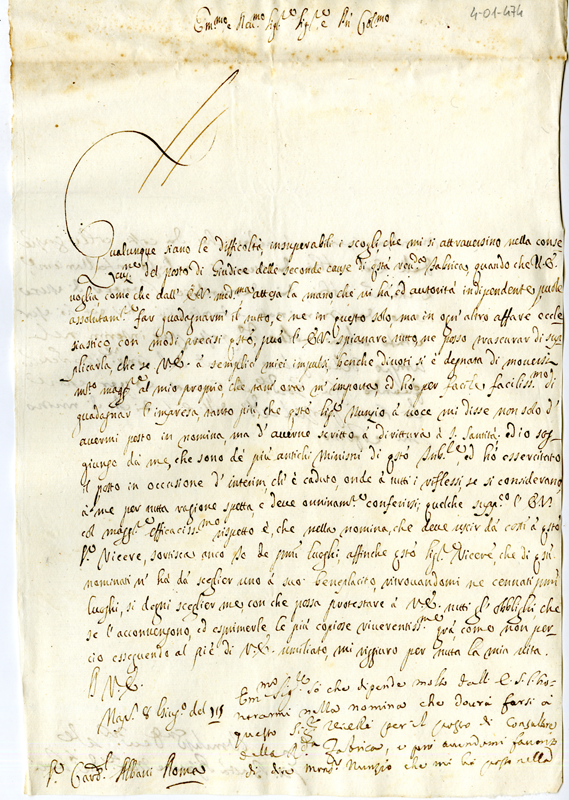 4-01-474
Em.mo e Rev.mo Sig.re Sig.re e P.ron Col.mo
Qualunque siano le difficoltà, insuperabili i scogli, che mi si attraversino nella conse
cuz.ne del posto di Giudice delle seconde cause di q.sta Rev.da Fabrica, quando che V.E.
voglia come che dall' E.V. med.ma attega la mano che vi hà, ed autorità indipendente, puole
assolutam.te far guadagnarmi il tutto, e ne in questo solo ma in ogn'altro affare eccle
siastico, con modi precisi q.sto, può l'E.V. spianare tutto, ne posso trascurar di sup
plicarla, che se V.E. à semplici miei impulsi, benche divoti si è degnata di moversi
molto magg.te al mio proprio che tant'ora m'importa ed hò per facile faciliss.mo di
guadagnar l'impresa tanto più, che q.sto Sig.r Nunzio à voce mi disse non solo d'
avermi posto in nomina, ma d'averne scritto à dirittura à S. Santità, ed io sog
giungo dà me, che sono de più antichi Ministri di q.sto Trib.le, ed hò essercitato
il posto in occasione d'interim, ch'è caduto, onde à tutti i riflessi, se si considerano
à me per tutta ragione spetta e deve onninam.te conferirsi; quelche supp.co l'E.V.
col magg.re efficaciss.mo rispetto è, che nella nomina, che deve uscir dà costì à q.sto
S.r Vicerè, sortisca anco Io de primi luoghi, affinche q.sto Sig.r Vicerè, che di q.sti
nominati n'hà dà sceglier uno à suo beneplacito, ritrovandomi ne cennati primi
luoghi, si degni sceglier me, con che possa protestare à V.E. tutti gl'obblighi, che
se l'acconvengono, ed esprimerle le più copiose riverentiss.me grà come non per
cio esseguendo al piè di V.E. umiliato, mi rassegno per tutta la mia vita.
D. V.E.
Nap. 8 Giug.o del 719
Em.mo Sig.re Sò che dipende molto dall'E.S. l'ho
norarmi nella nomina che dovrà farsi à
questo Sig.r Vicerè per il posto di Consultore
della R.da Fabrica, e però avendomi favorito
di dire Mons.r Nunzio che mi hà posto nella
S.r Card.l Albani Roma